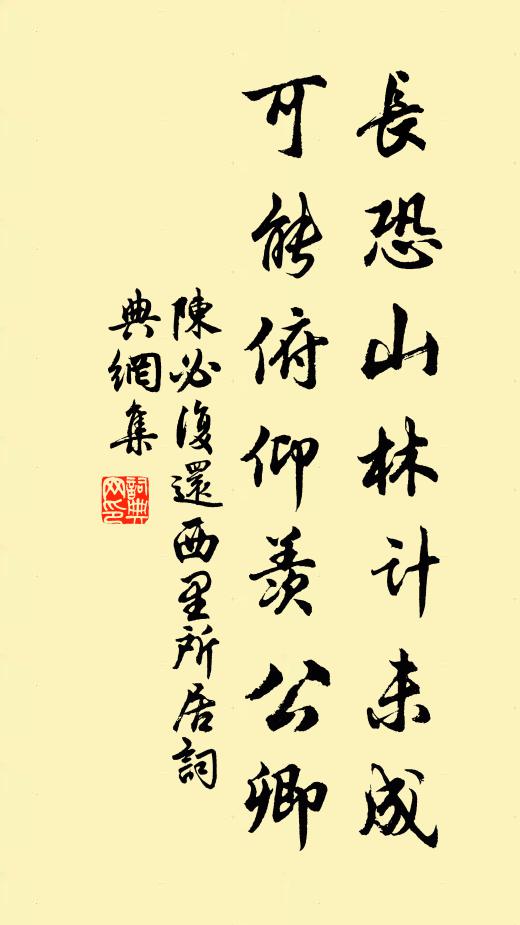 長恐山林计未成
可能俯仰羨公卿
陳必復還西里所居詞
典網集
詞典
网印